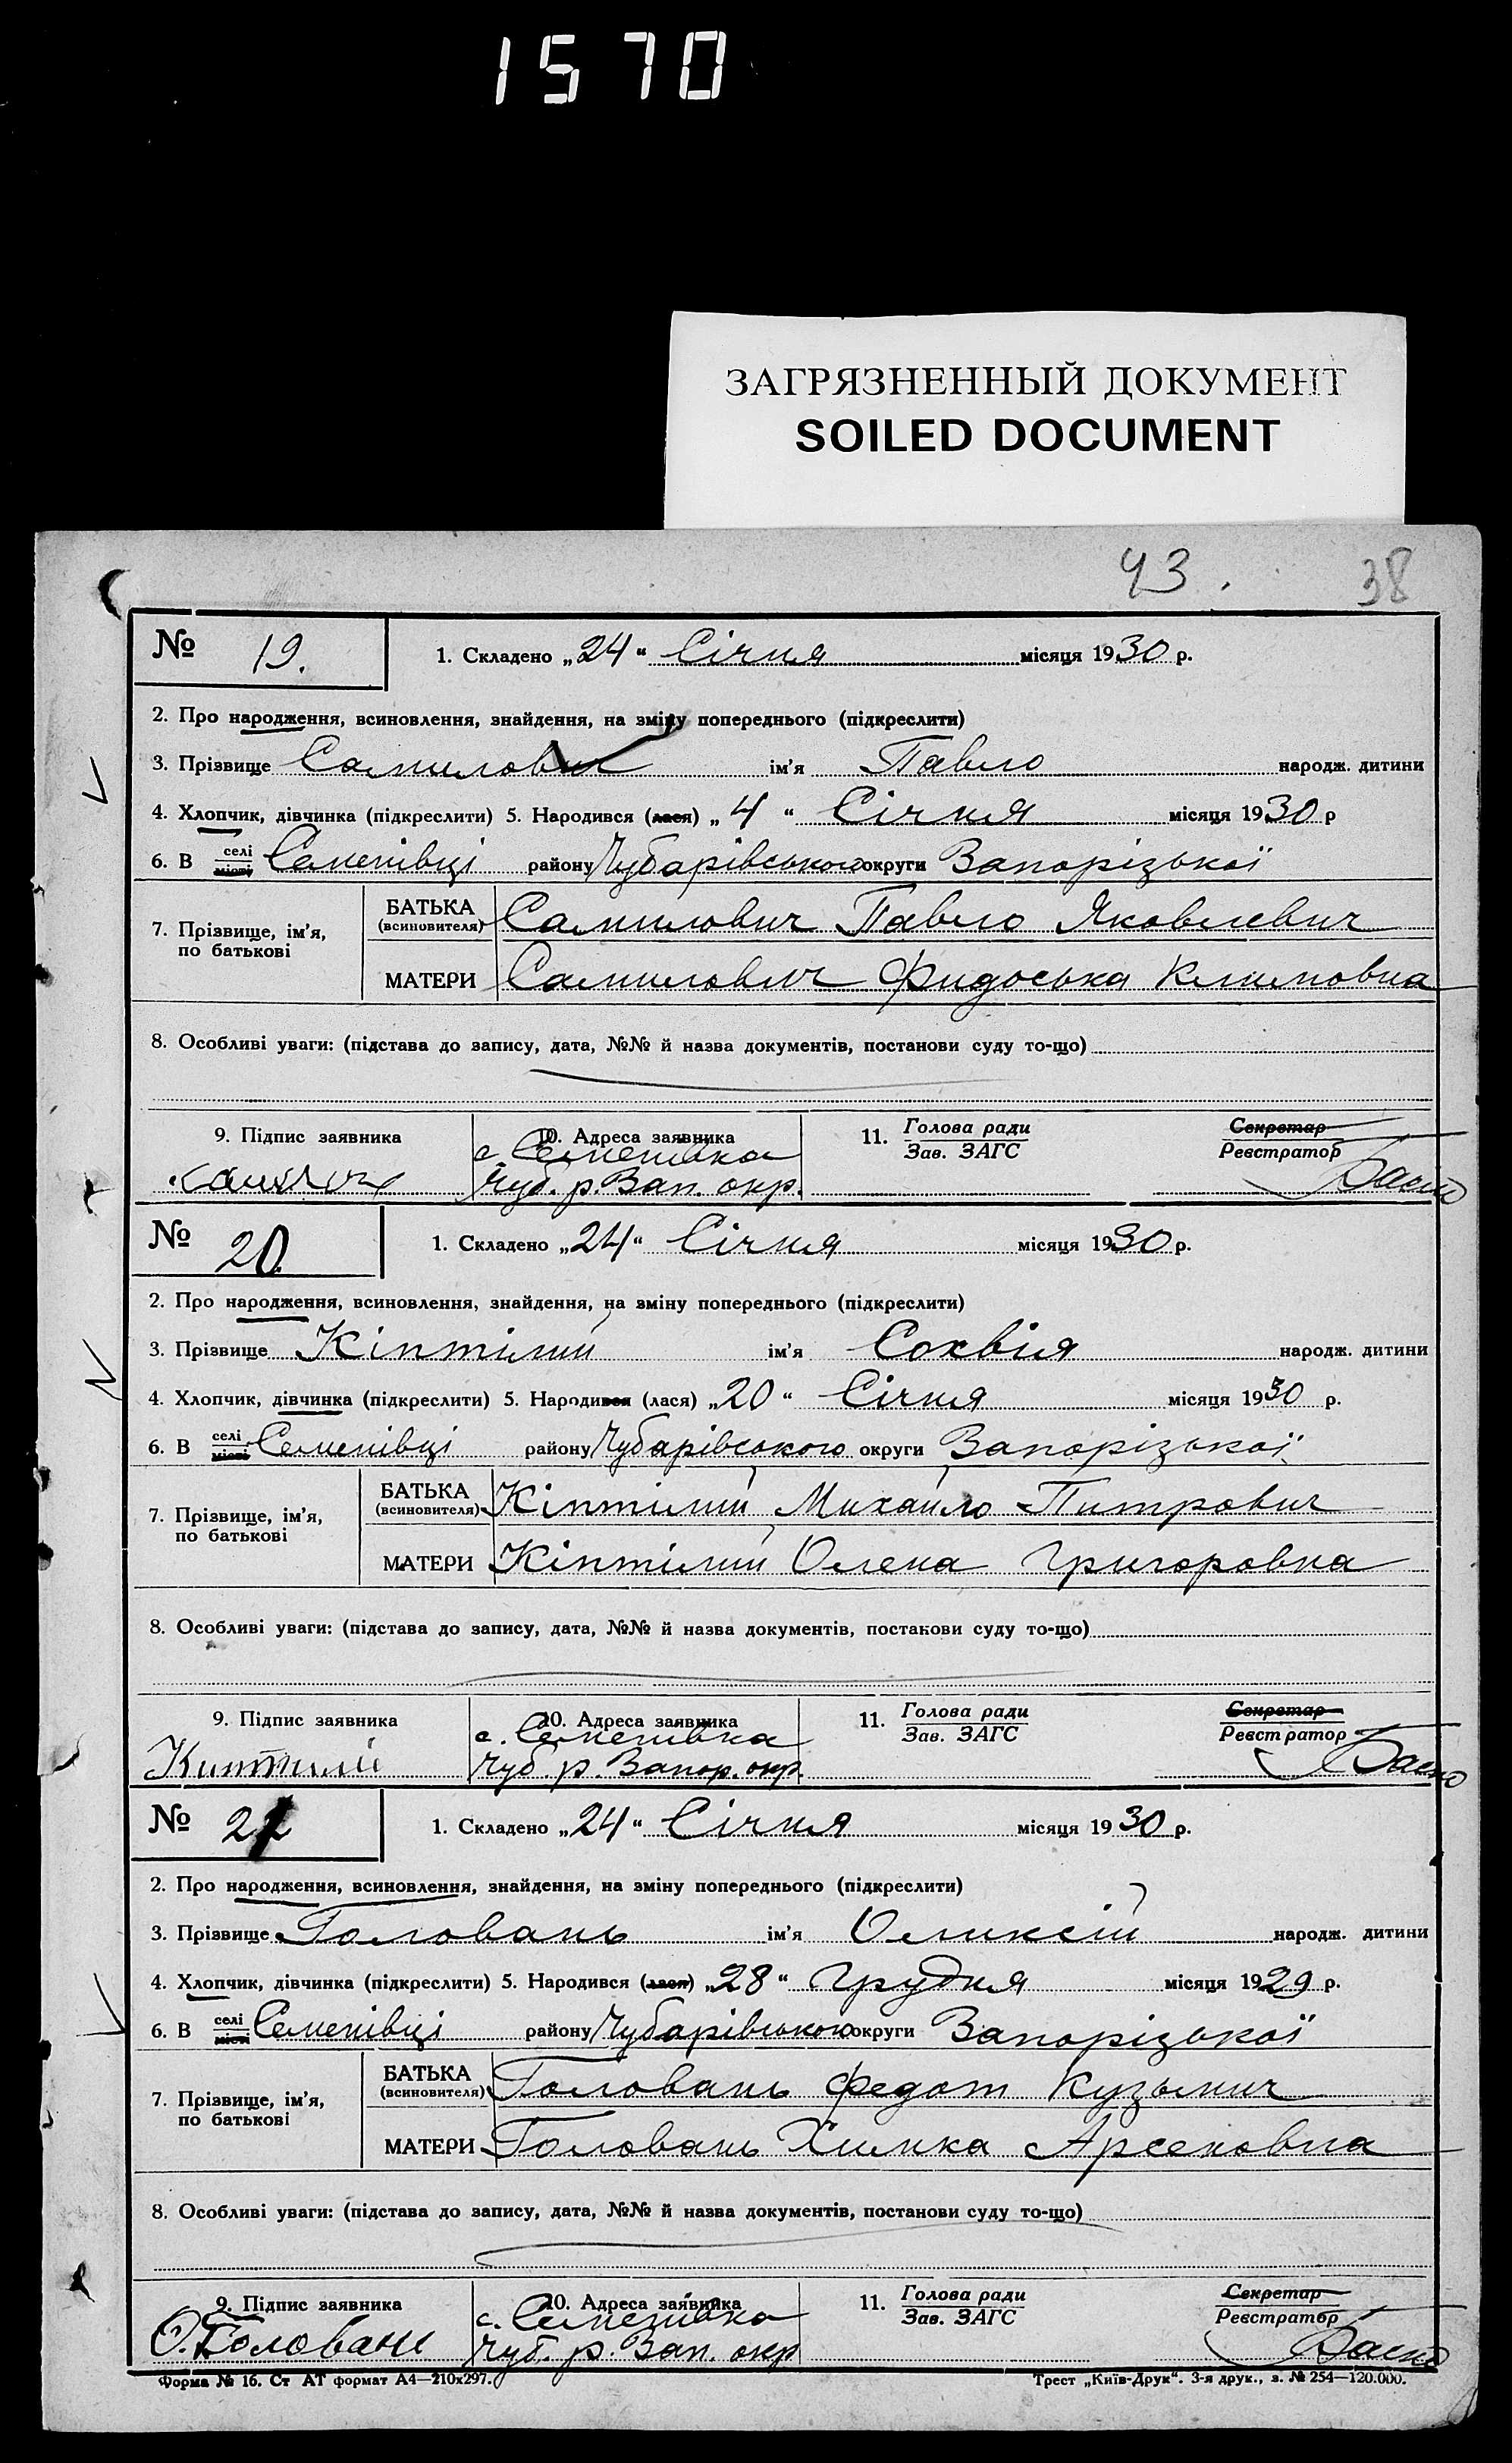 1570
ЗАГРЯЗНЕННЫЙ ДОКУМЕНТ
SOILED DOCUMENT
43. 38
№ 19. 1. Складено „24“ Січня місяця 1930 р.
2. Про народження, всиновлення, знайдення, на зміну попереднього (підкреслити)
3. Прізвище Самилович ім'я Павло народж. дитини
4. Хлопчик, дівчинка (підкреслити) 5. Народився (лася) „4“ Січня місяця 1930 р
6. В селі місті Семенівці району Чубарівського округи Запорізької
7. Прізвище, ім'я, по батькові БАТЬКА (всиновителя) Самилович Павло Яковлевич
МАТЕРИ Самилович Фидоська Климовна
8. Особливі уваги: (підстава до запису, дата, №№ й назва документів, постанови суду то-що)
9. Підпис заявника 10. Адреса заявника 11. Голова ради Зав. ЗАГС Секретар Реєстратор
с. Семенівка
Чуб. р. Зап. окр.
№ 20. 1. Складено „24“ Січня місяця 1930 р.
2. Про народження, всиновлення, знайдення, на зміну попереднього (підкреслити)
3. Прізвище Кіптілий ім'я Соквія народж. дитини
4. Хлопчик, дівчинка (підкреслити) 5. Народився (лася) „20“ Січня місяця 1930 р.
6. В селі місті Семенівці району Чубарівського округи Запорізької
7. Прізвище, ім'я, по батькові БАТЬКА (всиновителя) Кіптілий Михайло Питрович
МАТЕРИ Кіптілий Олена Григоровна
8. Особливі уваги: (підстава до запису, дата, №№ й назва документів, постанови суду то-що)
9. Підпис заявника 10. Адреса заявника 11. Голова ради Зав. ЗАГС Секретар Реєстратор
с. Семенівка
Чуб. р. Запор. окр.
№ 21 1. Складено „24“ Січня місяця 1930 р.
2. Про народження, всиновлення, знайдення, на зміну попереднього (підкреслити)
3. Прізвище Головань ім'я Оликсій народж. дитини
4. Хлопчик, дівчинка (підкреслити) 5. Народився (лася) „28“ Грудня місяця 1929 р.
6. В селі місті Семенівці району Чубарівського округи Запорізької
7. Прізвище, ім'я, по батькові БАТЬКА (всиновителя) Головань Федот Кузьмич
МАТЕРИ Головань Химка Арсеновна
8. Особливі уваги: (підстава до запису, дата, №№ й назва документів, постанови суду то-що)
9. Підпис заявника 10. Адреса заявника 11. Голова ради Зав. ЗАГС Секретар Реєстратор
с. Семенівка
Чуб. р. Зап. окр
Форма № 16. Ст АТ формат А4—210х297. Трест „Київ-Друк“. 3-я друк., з. № 254—120.000.